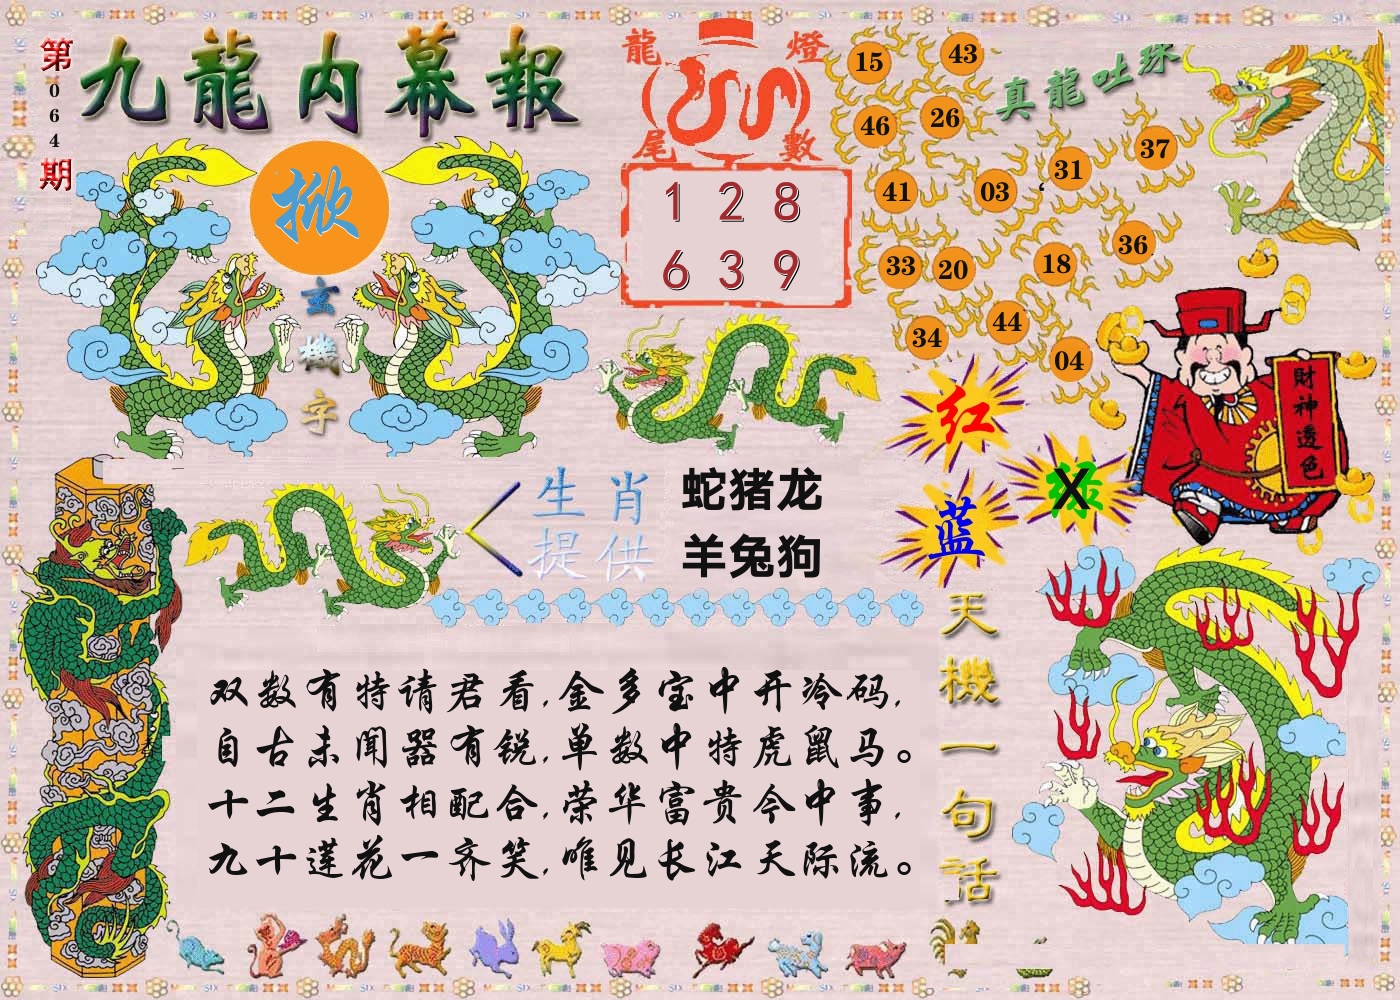 第064期
九龍内幕報
掀
玄機字
龍燈
尾數
1 2 8
6 3 9
真龍吐珠
15 43
46 26
41 03 31 37
33 20 18 36
34 44 04
財神透色
红
蓝
绿
X
生肖
提供
蛇猪龙
羊兔狗
双数有特请君看,金多宝中开冷码,
自古未闻器有锐,单数中特虎鼠马。
十二生肖相配合,荣华富贵今中事,
九十莲花一齐笑,唯见长江天际流。
天機一句话